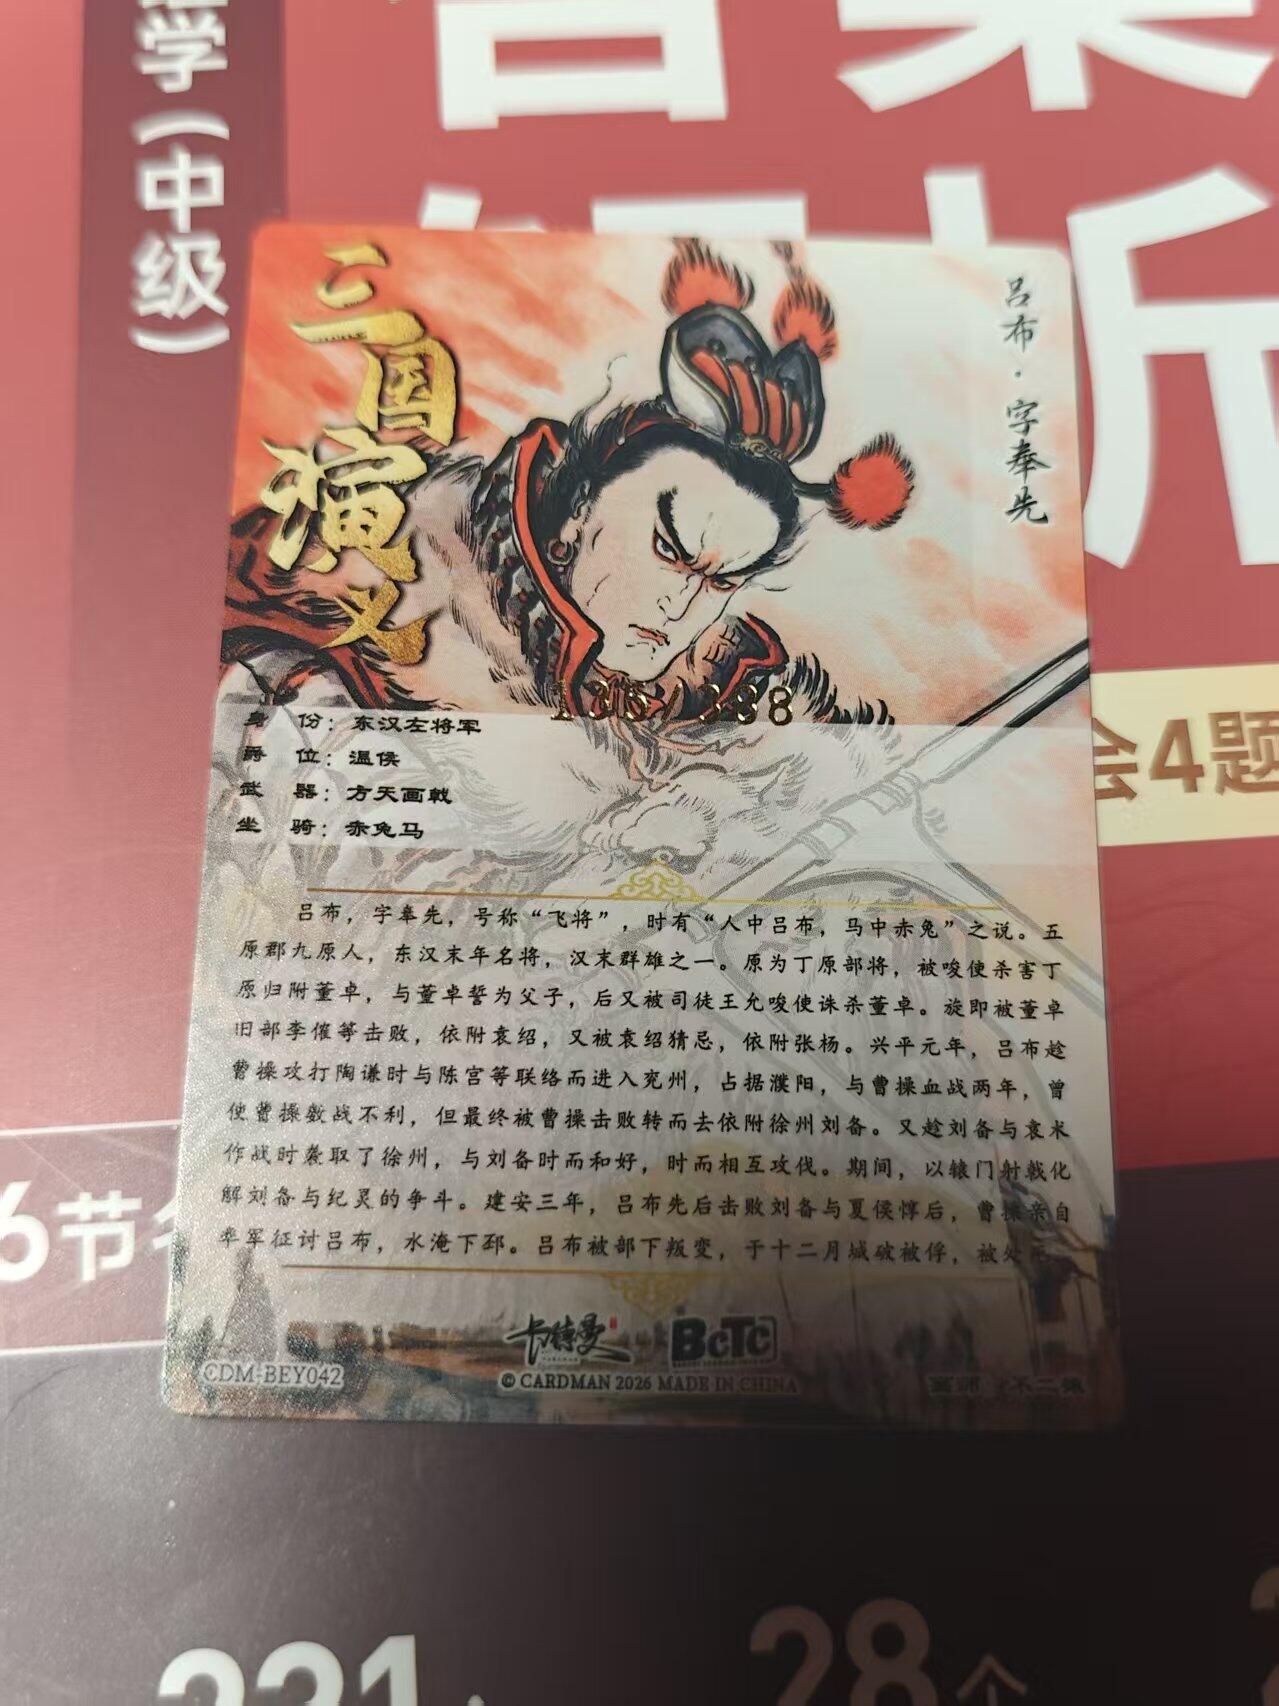 学（中级）
答案
析
三国演义
吕布·字奉先
会4题
135/388
身 份：东汉左将军
爵 位：温侯
武 器：方天画戟
坐 骑：赤兔马
吕布，字奉先，号称“飞将”，时有“人中吕布，马中赤兔”之说。五
原郡九原人，东汉末年名将，汉末群雄之一。原为丁原部将，被唆使杀害丁
原归附董卓，与董卓誓为父子，后又被司徒王允唆使诛杀董卓。旋即被董卓
旧部李傕等击败，依附袁绍，又被袁绍猜忌，依附张杨。兴平元年，吕布趁
曹操攻打陶谦时与陈宫等联络而进入兖州，占据濮阳，与曹操血战两年，曾
使曹操数战不利，但最终被曹操击败转而去依附徐州刘备。又趁刘备与袁术
作战时袭取了徐州，与刘备时而和好，时而相互攻伐。期间，以辕门射戟化
解刘备与纪灵的争斗。建安三年，吕布先后击败刘备与夏侯惇后，曹操亲自
率军征讨吕布，水淹下邳。吕布被部下叛变，于十二月城破被俘，被处死。
6节
卡德曼 BCTC
CDM-BEY042
© CARDMAN 2026 MADE IN CHINA
画师：不二
231
28个